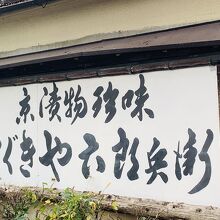 京漬物珍味
ぐきや六郎兵衛